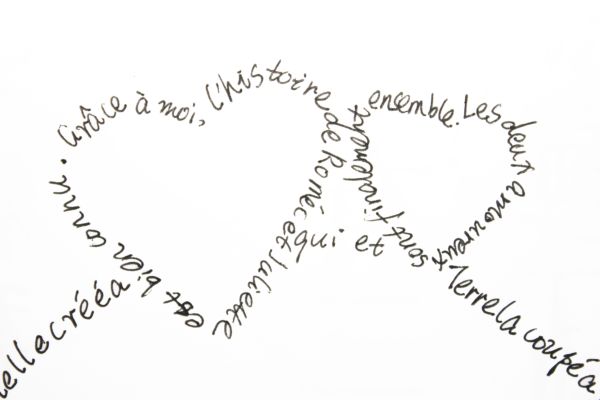 Grâce à moi, l'histoire de Roméo et Juliette est bien connu.
qui et
sont finalement ensemble. Les deux amoureux
elle créé a
Terre la coupé a